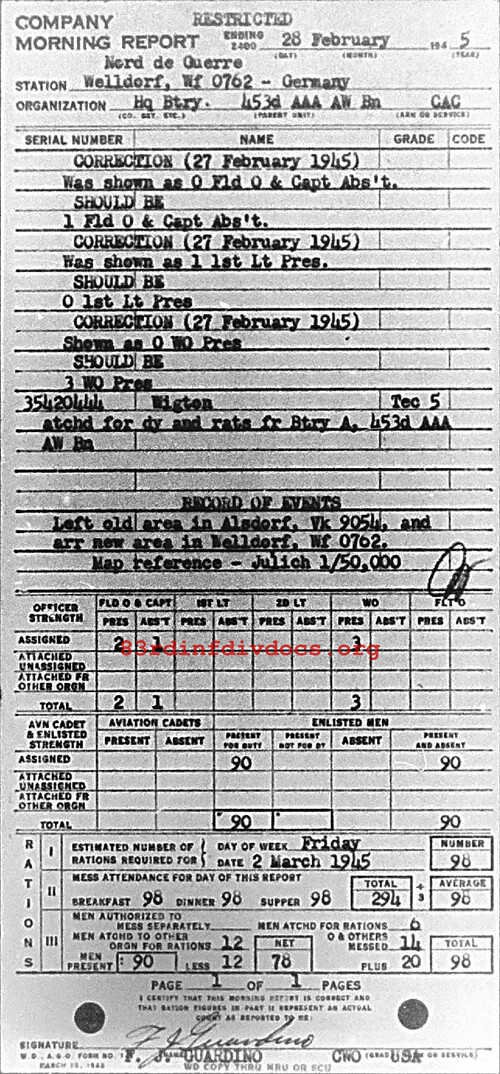 COMPANY RESTRICTED
MORNING REPORT ENDING 2400 28 February 194 5
(DAY) (MONTH) (YEAR)
Nord de Guerre
STATION Welldorf, Wf 0762 - Germany
ORGANIZATION Hq Btry. 453d AAA AW Bn CAC
(CO. BRY. ETC.) (PARENT UNIT) (ARM OR SERVICE)
SERIAL NUMBER NAME GRADE CODE
CORRECTION (27 February 1945)
Was shown as 0 Fld O & Capt Abs't.
SHOULD BE
1 Fld O & Capt Abs't.
CORRECTION (27 February 1945)
Was shown as 1 1st Lt Pres.
SHOULD BE
0 1st Lt Pres
CORRECTION (27 February 1945)
Shown as 0 WO Pres
SHOULD BE
3 WO Pres
35420444 Wigton Tec 5
atchd for dy and rats fr Btry A, 453d AAA
AW Bn
RECORD OF EVENTS
Left old area in Alsdorf, Vk 9054, and
arr new area in Welldorf, Wf 0762.
Map reference - Julich 1/50,000
OFFICER STRENGTH FLD O & CAPT 1ST LT 2D LT WO FLT O
PRES ABS'T PRES ABS'T PRES ABS'T PRES ABS'T PRES ABS'T
ASSIGNED 2 1 3
83rdinfdivdocs.org
ATTACHED UNASSIGNED
ATTACHED FR OTHER ORGN
TOTAL 2 1 3
AVN CADET & ENLISTED STRENGTH AVIATION CADETS ENLISTED MEN
PRESENT ABSENT PRESENT FOR DUTY PRESENT NOT FOR DY ABSENT PRESENT AND ABSENT
ASSIGNED 90 90
ATTACHED UNASSIGNED
ATTACHED FR OTHER ORGN
TOTAL 90 90
RATIONS
I ESTIMATED NUMBER OF RATIONS REQUIRED FOR DAY OF WEEK Friday NUMBER
DATE 2 March 1945 98
II MESS ATTENDANCE FOR DAY OF THIS REPORT TOTAL ÷ 3 AVERAGE
BREAKFAST 98 DINNER 98 SUPPER 98 294 98
III MEN AUTHORIZED TO MESS SEPARATELY MEN ATCHD FOR RATIONS 6
MEN ATCHD TO OTHER ORGN FOR RATIONS 12 NET O & OTHERS MESSED 14 TOTAL
MEN PRESENT : 90 LESS 12 78 PLUS 20 98
PAGE 1 OF 1 PAGES
I CERTIFY THAT THIS MORNING REPORT IS CORRECT AND
THAT RATION FIGURES IN PART II REPRESENT AN ACTUAL
COUNT AS REPORTED TO ME:
SIGNATURE F. J. Guardino
W.D., A.G.O. FORM NO. 1 F. J. GUARDINO CWO (GRADE) USA OR SERVICE)
MARCH 10, 1943 WD COPY THRU MRU OR SCU